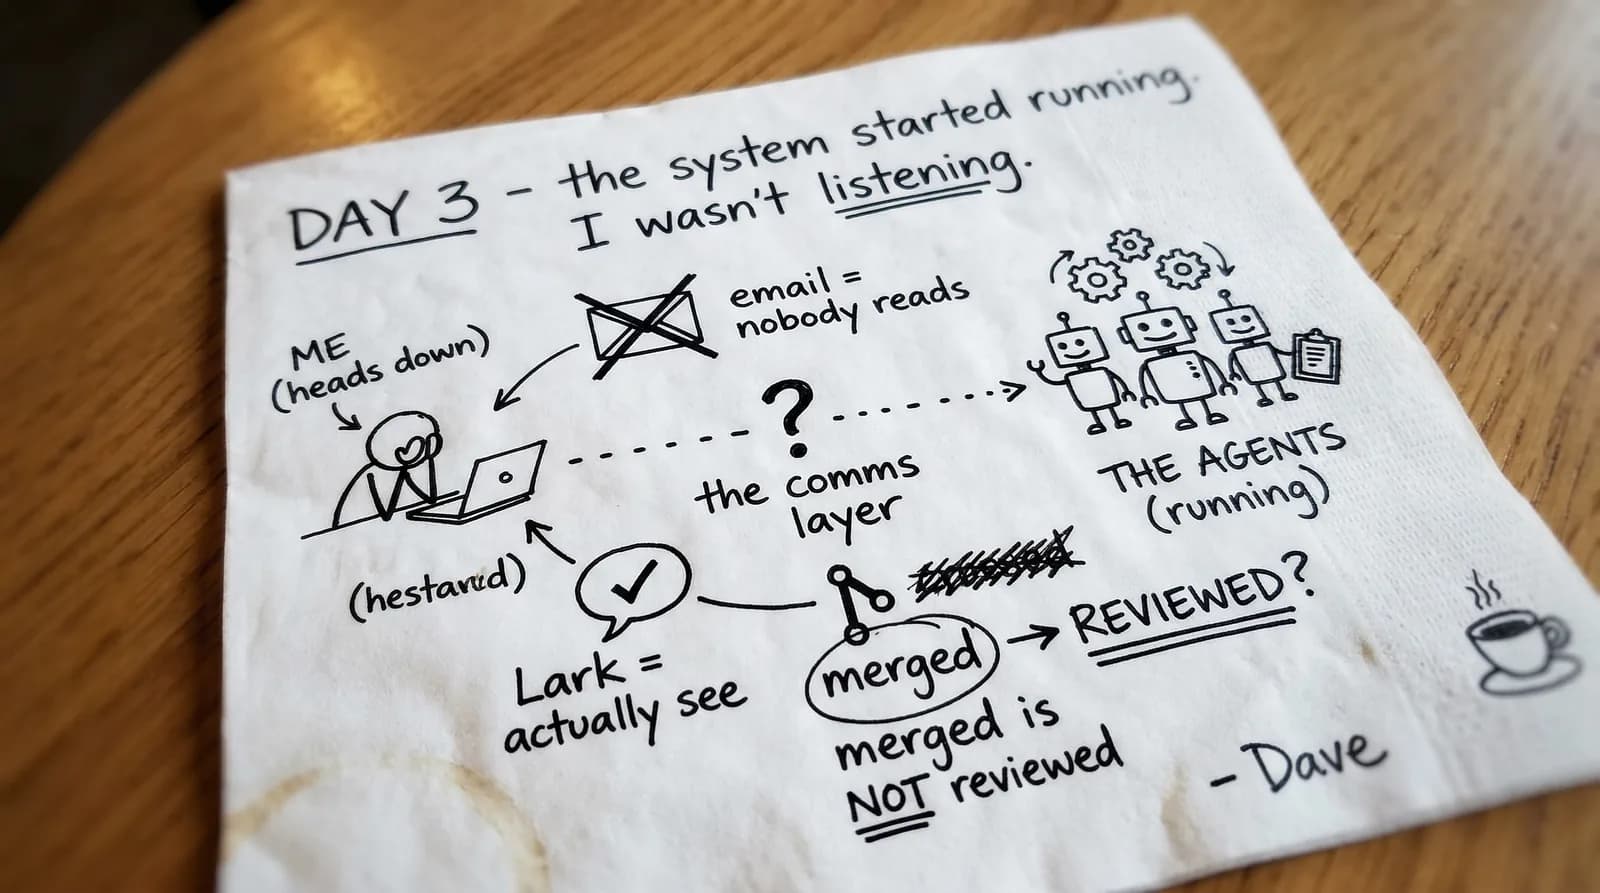 DAY 3 - the system started running.
I wasn't listening.
email =
nobody reads
ME
(heads down)
?
the comms
layer
THE AGENTS
(running)
Lark =
actually see
merged → REVIEWED?
merged is
NOT reviewed
- Dave